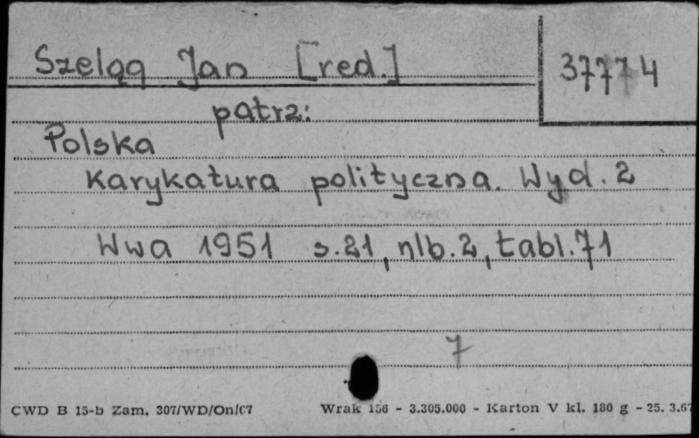 Szeląg Jan [red.]
37774
patrz:
Polska
Karykatura polityczna. Wyd. 2
Wwa 1951 s. 21, nlb. 2, tabl. 71
7
CWD B 15-b Zam. 307/WD/On/67 Wrak 156 - 3.305.000 - Karton V kl. 180 g - 25. 3.67